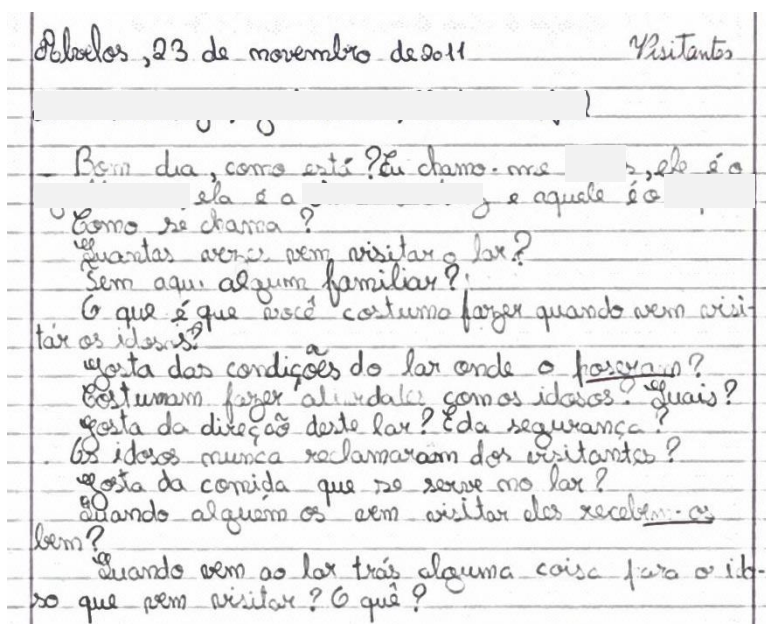 Abelos, 23 de novembro de 2011 Visitantes
- Bom dia, como está? Eu chamo-me s, ele é o
ela é a e aquele é o
Como se chama?
Quantas vezes vem visitar o lar?
Tem aqui algum familiar?
O que é que você costuma fazer quando vem visi-
tar os idosos?
Gosta das condições do lar onde o poseram?
Costumam fazer com os idosos? Quais?
Gosta da direção deste lar? E da segurança?
Os idosos nunca reclamaram dos visitantes?
Gosta da comida que se serve no lar?
Quando alguém os vem visitar eles recebem-os
bem?
Quando vem ao lar trás alguma coisa para o ido-
so que vem visitar? O quê?